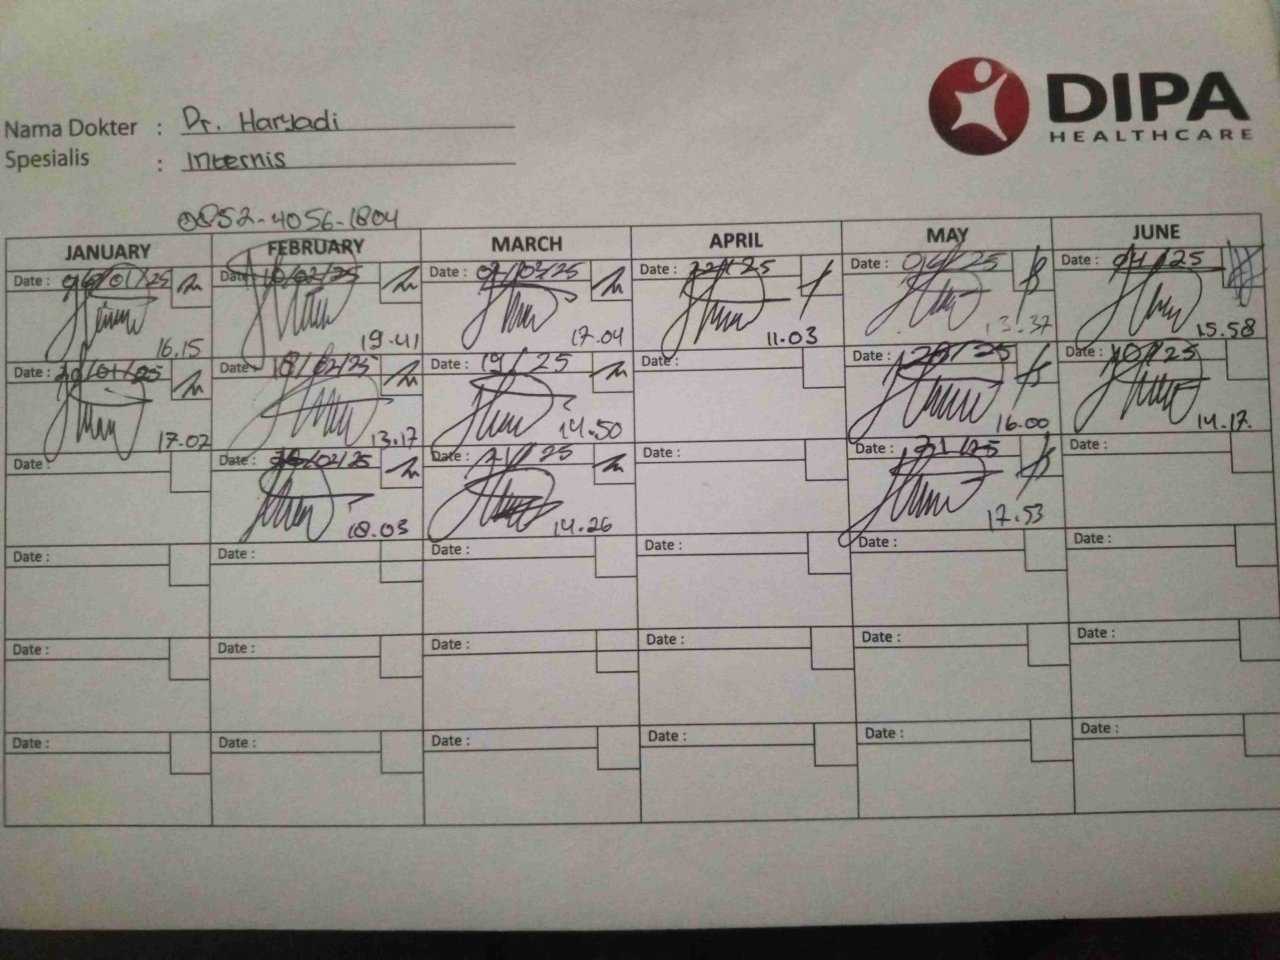 DIPA
HEALTHCARE
Nama Dokter : Dr. Haryadi
Spesialis : Internis
0852-4056-1804
JANUARY FEBRUARY MARCH APRIL MAY JUNE
Date : /01/25 Date : 10/02/25 Date : 03/25 Date : 22/ /25 Date : /25 Date : /25
16.15 19.41 17.04 11.03 13.37 15.58
Date : /01/25 Date : 18/02/25 19/ /25 Date : Date : /25 Date : 10/ /25
17.02 13.17 14.50 16.00 14.17
Date : Date : /02/25 Date : 21/ /25 Date : Date : 21/ /25 Date :
18.03 14.26 17.53
Date : Date : Date : Date : Date : Date :
Date : Date : Date : Date : Date : Date :
Date : Date : Date : Date : Date : Date :